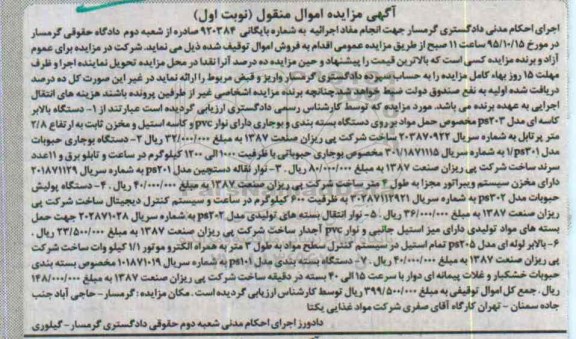 آگهی مزایده اموال منقول (نوبت اول)
اجرای احکام مدنی دادگستری گرمسار جهت انجام مفاد اجرائیه به شماره بایگانی ۹۲۰۳۸۴ صادره از شعبه دوم دادگاه حقوقی گرمسار
در مورخ ۹۵/۱۰/۱۵ ساعت ۱۱ صبح از طریق مزایده عمومی اقدام به فروش اموال توقیف شده ذیل می نماید. شرکت در مزایده برای عموم
آزاد و برنده مزایده کسی است که بالاترین قیمت را پیشنهاد و حین مزایده ده درصد آنرا نقدا در محل مزایده تحویل نماینده اجرا و ظرف
مهلت ۱۵ روز بهاء کامل مزایده را به حساب سپرده دادگستری گرمسار واریز و قبض مربوط را ارائه نماید در غیر این صورت کل ده درصد
دریافت شده اولیه به نفع صندوق دولت ضبط خواهد شد چنانچه برنده مزایده اشخاصی غیر از طرفین پرونده باشند هزینه های انتقال
اجرایی به عهده برنده می باشد. مورد مزایده که توسط کارشناس رسمی دادگستری ارزیابی گردیده است عبارتند از ۱- دستگاه بالابر
کاسه ای مدل ps۲۰۳ مخصوص حمل مواد بر روی دستگاه بسته بندی و بوجاری دارای نوار pvc و کاسه استیل و مخزن ثابت به ارتفاع ۲/۸
متر پر تابل به شماره سریال ۲۰۳۸۷۰۹۲۲ ساخت شرکت پی ریزان صنعت ۱۳۸۷ به مبلغ ۳۲/۰۰۰/۰۰۰ ریال ۲- دستگاه بوجاری حبوبات
مدل ps۳۰۱/۱ به شماره سریال ۳۰۱۸۷۱۱۱۵ مخصوص بوجاری حبوباتی با ظرفیت ۱۰۰۰ الی ۱۲۰۰ کیلوگرم در ساعت و تابلو برق و ۱۱عدد
سرند ساخت شرکت پی ریزان صنعت ۱۳۸۷ به مبلغ ۸۰/۰۰۰/۰۰۰ ریال. ۳- نوار نقاله دستچین مدل ps۲۰۱ به شماره سریال ۲۰۱۸۷۱۱۲۹
دارای مخزن سیستم ویبراتور مجزا به طول ۴ متر ساخت شرکت پی ریزان صنعت ۱۳۸۷ به مبلغ ۴۰/۰۰۰/۰۰۰ ریال. ۴- دستگاه پولیش
حبوبات مدل ps۳۰۲ به شماره سریال ۳۰۲۸۷۱۱۲۹۲۱ به ظرفیت ۶۰۰ کیلوگرم در ساعت و سیستم کنترل دیجیتال ساخت شرکت پی
ریزان صنعت ۱۳۸۷ به مبلغ ۳۶/۰۰۰/۰۰۰ ریال. ۵- نوار انتقال بسته های تولیدی مدل ps۲۰۲ به شماره سریال ۲۰۲۸۷۱۰۲۸ جهت حمل
بسته های مواد تولیدی دارای میز استیل جانبی و نوار pvc آجدار ساخت شرکت پی ریزان صنعت ۱۳۸۷ به مبلغ ۲۳/۵۰۰/۰۰۰ ریال.
۶- بالابر لوله ای مدل ps۲۰۵ تمام استیل در سیستم کنترل سطح مواد به طول ۳ متر به همراه الکترو موتور ۱/۱ کیلو وات ساخت شرکت
پی ریزان صنعت ۱۳۸۷ به مبلغ ۴۰/۰۰۰/۰۰۰ ریال. ۷- دستگاه بسته بندی مدل ps۱۰۱ به شماره سریال ۱۰۱۸۷۱۰۱۹ مخصوص بسته بندی
حبوبات خشکبار و غلات پیمانه ای دوار با سرعت ۱۵ الی ۴۰ بسته در دقیقه ساخت شرکت پی ریزان صنعت ۱۳۸۷ به مبلغ ۱۴۸/۰۰۰/۰۰۰
ریال. جمع کل اموال توقیفی به مبلغ ۳۹۹/۵۰۰/۰۰۰ ریال توسط کارشناس ارزیابی گردیده است. مکان مزایده : گرمسار- حاجی آباد جنب
جاده سمنان - تهران کارگاه آقای صفری شرکت مواد غذایی یکتا
دادورز اجرای احکام مدنی شعبه دوم حقوقی دادگستری گرمسار- گیلوری